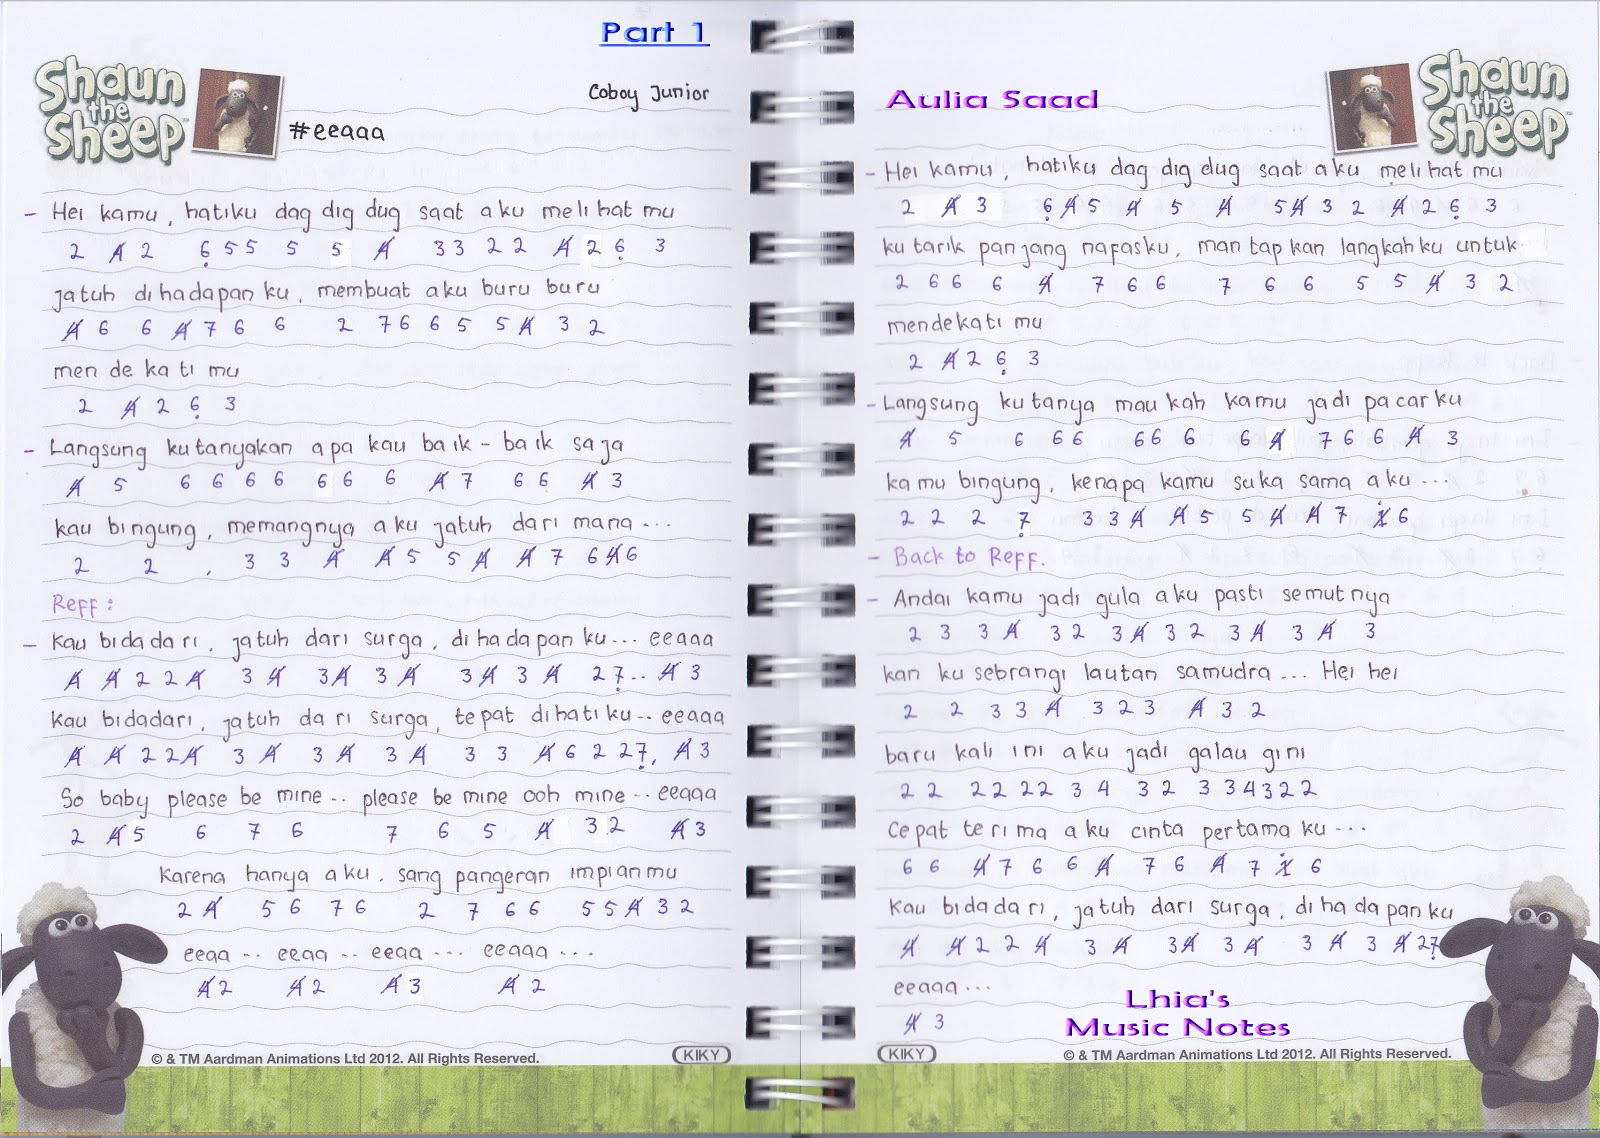 Part 1
Shaun
the
Sheep™
Coboy Junior
#eeaaa
- Hei kamu, hatiku dag dig dug saat aku melihat mu
2 4̸ 2 6̣ 5 5 5 5 4̸ 3 3 2 2 4̸ 2 6̣ 3
jatuh dihadapan ku, membuat aku buru buru
4̸ 6 6 4̸ 7 6 6 2 7 6 6 5 5 4̸ 3 2
men de ka ti mu
2 4̸ 2 6̣ 3
- Langsung ku tanyakan apa kau baik - baik saja
4̸ 5 6 6 6 6 6 6 6 4̸ 7 6 6 4̸ 3
kau bingung, memangnya aku jatuh dari mana ...
2 2 , 3 3 4̸ 4̸ 5 5 4̸ 4̸ 7 6 4̸ 6
Reff :
- Kau bidadari, jatuh dari surga, di hadapan ku... eeaaa
4̸ 4̸ 2 2 4̸ 3 4̸ 3 4̸ 3 4̸ 3 4̸ 3 4̸ 2 7̣ .. 4̸ 3
Kau bidadari, jatuh dari surga, tepat dihatiku.. eeaaa
4̸ 4̸ 2 2 4̸ 3 4̸ 3 4̸ 3 4̸ 3 3 4̸ 6 2 2 7̣, 4̸ 3
So baby please be mine .. please be mine ooh mine .. eeaaa
2 4̸ 5 6 7 6 7 6 5 4̸ 3 2 4̸ 3
Karena hanya aku, sang pangeran impianmu
2 4̸ 5 6 7 6 2 7 6 6 5 5 4̸ 3 2
eeaa .. eeaa .. eeaa ... eeaaa ...
4̸ 2 4̸ 2 4̸ 3 4̸ 2
© & TM Aardman Animations Ltd 2012. All Rights Reserved.
KIKY
Aulia Saad
Shaun
the
Sheep™
- Hei kamu, hatiku dag dig dug saat aku melihat mu
2 4̸ 3 6̣ 4̸ 5 4̸ 5 4̸ 5 4̸ 3 2 4̸ 2 6̣ 3
ku tarik panjang nafasku, man tap kan langkahku untuk
2 6 6 6 4̸ 7 6 6 7 6 6 5 5 4̸ 3 2
mendekati mu
2 4̸ 2 6̣ 3
- Langsung ku tanya mau kah kamu jadi pacar ku
4̸ 5 6 6 6 6 6 6 6 4̸ 7 6 6 4̸ 3
kamu bingung, kenapa kamu suka sama aku ...
2 2 2 7̣ 3 3 4̸ 4̸ 5 5 4̸ 4̸ 7 1̸̇ 6
- Back to Reff.
- Andai kamu jadi gula aku pasti semutnya
2 3 3 4̸ 3 2 3 4̸ 3 2 3 4̸ 3 4̸ 3
kan ku sebrangi lautan samudra ... Hei hei
2 2 3 3 4̸ 3 2 3 4̸ 3 2
baru kali ini aku jadi galau gini
2 2 2 2 2 2 3 4 3 2 3 3 4 3 2 2
Cepat terima aku cinta pertama ku ...
6 6 4̸ 7 6 6 4̸ 7 6 4̸ 7 1̸̇ 6
Kau bidadari, jatuh dari surga, dihadapanku
4̸ 4̸ 2 2 4̸ 3 4̸ 3 4̸ 3 4̸ 3 4̸ 3 4̸ 2 7̣
eeaaa ...
4̸ 3
Lhia's
Music Notes
KIKY
© & TM Aardman Animations Ltd 2012. All Rights Reserved.